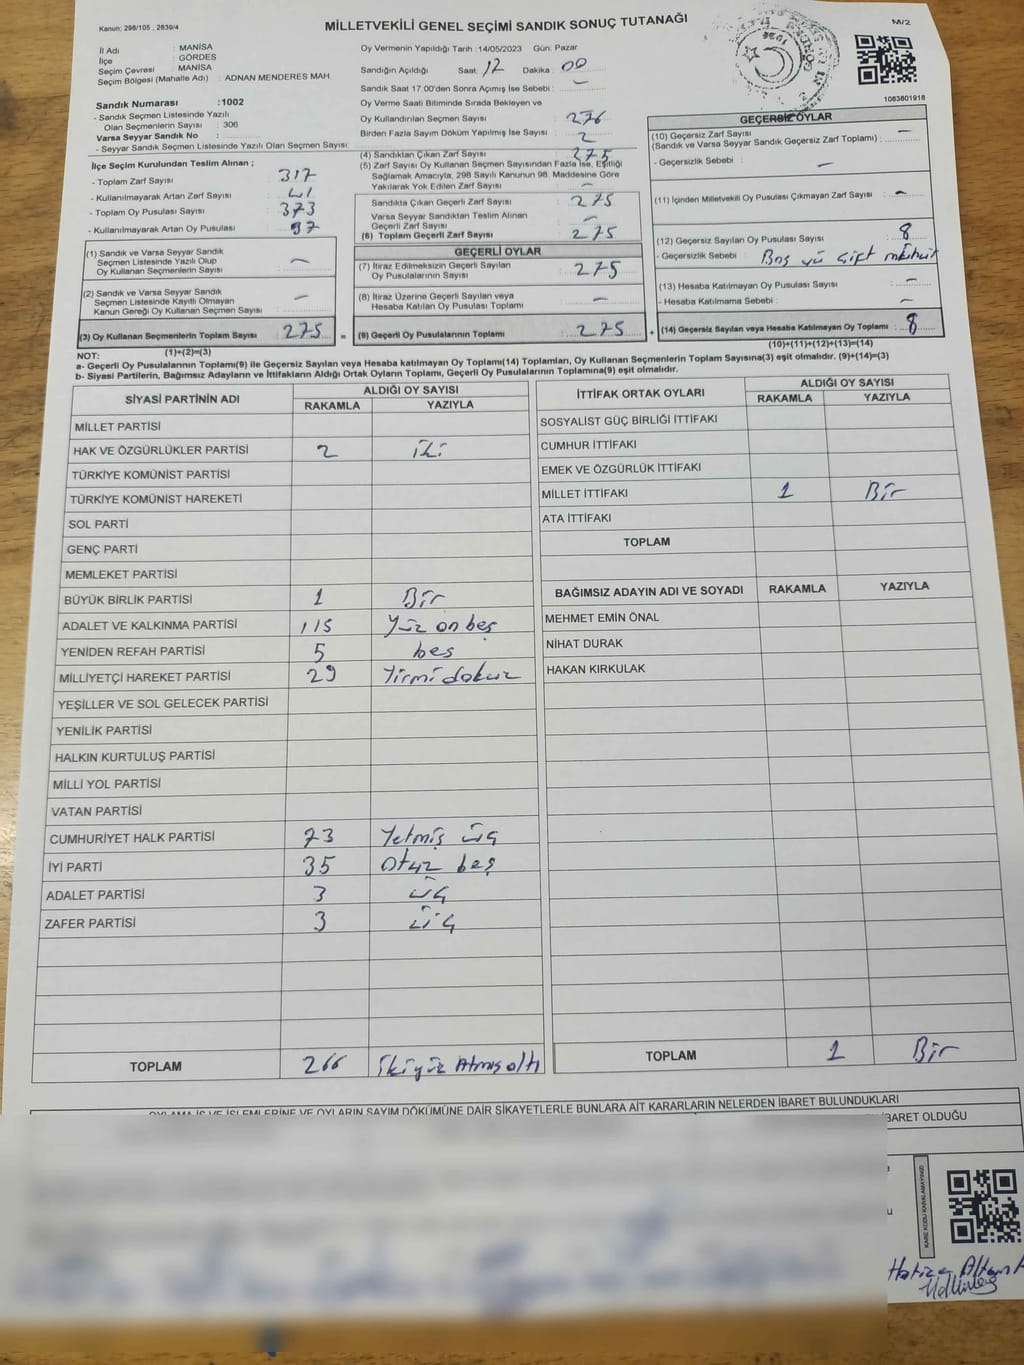 Kanun; 298/105 , 2839/4
MİLLETVEKİLİ GENEL SEÇİMİ SANDIK SONUÇ TUTANAĞI
M/2
İl Adı : MANİSA
İlçe : GÖRDES
Seçim Çevresi : MANİSA
Seçim Bölgesi (Mahalle Adı) : ADNAN MENDERES MAH.
Sandık Numarası :1002
- Sandık Seçmen Listesinde Yazılı
Olan Seçmenlerin Sayısı : 306
Varsa Seyyar Sandık No :
- Seyyar Sandık Seçmen Listesinde Yazılı Olan Seçmen Sayısı
İlçe Seçim Kurulundan Teslim Alınan ;
- Toplam Zarf Sayısı : 317
- Kullanılmayarak Artan Zarf Sayısı : 41
- Toplam Oy Pusulası Sayısı : 373
- Kullanılmayarak Artan Oy Pusulası : 97
(1) Sandık ve Varsa Seyyar Sandık
Seçmen Listesinde Yazılı Olup
Oy Kullanan Seçmenlerin Sayısı : —
(2) Sandık ve Varsa Seyyar Sandık
Seçmen Listesinde Kayıtlı Olmayan
Kanun Gereği Oy Kullanan Seçmenlerin Sayısı : —
(3) Oy Kullanan Seçmenlerin Toplam Sayısı : 275 =
(1)+(2)=(3)
Oy Vermenin Yapıldığı Tarih :14/05/2023 Gün: Pazar
Sandığın Açıldığı Saat: 12 Dakika : 00
Sandık Saat 17.00'den Sonra Açımış İse Sebebi : —
Oy Verme Saati Bitiminde Sırada Bekleyen ve
Oy Kullandırılan Seçmen Sayısı : 276
Birden Fazla Sayım Döküm Yapılmış İse Sayısı : 2
(4) Sandıktan Çıkan Zarf Sayısı : 275
(5) Zarf Sayısı Oy Kullanan Seçmen Sayısından Fazla İse, Eşitliği
Sağlamak Amacıyla, 298 Sayılı Kanunun 98. Maddesine Göre
Yakılarak Yok Edilen Zarf Sayısı : —
Sandıkta Çıkan Geçerli Zarf Sayısı : 275
Varsa Seyyar Sandıktan Teslim Alınan
Geçerli Zarf Sayısı : —
(6) Toplam Geçerli Zarf Sayısı : 275
GEÇERLİ OYLAR
(7) İtiraz Edilmeksizin Geçerli Sayılan
Oy Pusulalarının Sayısı : 275
(8) İtiraz Üzerine Geçerli Sayılan veya
Hesaba Katılan Oy Pusulaları Toplamı : —
(9) Geçerli Oy Pusulalarının Toplamı : 275 +
1083801918
GEÇERSİZ OYLAR
(10) Geçersiz Zarf Sayısı
(Sandık ve Varsa Seyyar Sandık Geçersiz Zarf Toplamı) : —
- Geçersizlik Sebebi : —
(11) İçinden Milletvekili Oy Pusulası Çıkmayan Zarf Sayısı : —
(12) Geçersiz Sayılan Oy Pusulası Sayısı : 8
- Geçersizlik Sebebi : Boş çift mühür
(13) Hesaba Katılmayan Oy Pusulası Sayısı : —
- Hesaba Katılmama Sebebi : —
(14) Geçersiz Sayılan veya Hesaba Katılmayan Oy Toplamı : 8
(10)+(11)+(12)+(13)=(14)
NOT:
a- Geçerli Oy Pusulalarının Toplamı(9) ile Geçersiz Sayılan veya Hesaba katılmayan Oy Toplamı(14) Toplamları, Oy Kullanan Seçmenlerin Toplam Sayısına(3) eşit olmalıdır. (9)+(14)=(3)
b- Siyasi Partilerin, Bağımsız Adayların ve İttifakların Aldığı Ortak Oyların Toplamı, Geçerli Oy Pusulalarının Toplamına(9) eşit olmalıdır.
SİYASİ PARTİNİN ADI ALDIĞI OY SAYISI
RAKAMLA YAZIYLA
MİLLET PARTİSİ
HAK VE ÖZGÜRLÜKLER PARTİSİ 2 iki
TÜRKİYE KOMÜNİST PARTİSİ
TÜRKİYE KOMÜNİST HAREKETİ
SOL PARTİ
GENÇ PARTİ
MEMLEKET PARTİSİ
BÜYÜK BİRLİK PARTİSİ 1 Bir
ADALET VE KALKINMA PARTİSİ 115 Yüz on beş
YENİDEN REFAH PARTİSİ 5 beş
MİLLİYETÇİ HAREKET PARTİSİ 29 Yirmi dokuz
YEŞİLLER VE SOL GELECEK PARTİSİ
YENİLİK PARTİSİ
HALKIN KURTULUŞ PARTİSİ
MİLLİ YOL PARTİSİ
VATAN PARTİSİ
CUMHURİYET HALK PARTİSİ 73 Yetmiş üç
İYİ PARTİ 35 Otuz beş
ADALET PARTİSİ 3 üç
ZAFER PARTİSİ 3 üç
TOPLAM 266 ikiyüz Atmış altı
İTTİFAK ORTAK OYLARI ALDIĞI OY SAYISI
RAKAMLA YAZIYLA
SOSYALİST GÜÇ BİRLİĞİ İTTİFAKI
CUMHUR İTTİFAKI
EMEK VE ÖZGÜRLÜK İTTİFAKI
MİLLET İTTİFAKI 1 Bir
ATA İTTİFAKI
TOPLAM
BAĞIMSIZ ADAYIN ADI VE SOYADI RAKAMLA YAZIYLA
MEHMET EMİN ÖNAL
NİHAT DURAK
HAKAN KIRKULAK
TOPLAM 1 Bir
OYLAMA İŞ VE İŞLEMLERİNE VE OYLARIN SAYIM DÖKÜMÜNE DAİR ŞİKAYETLERLE BUNLARA AİT KARARLARIN NELERDEN İBARET BULUNDUKLARI
İBARET OLDUĞU
KARE KODU KARALAMAYINIZ!
Hatice